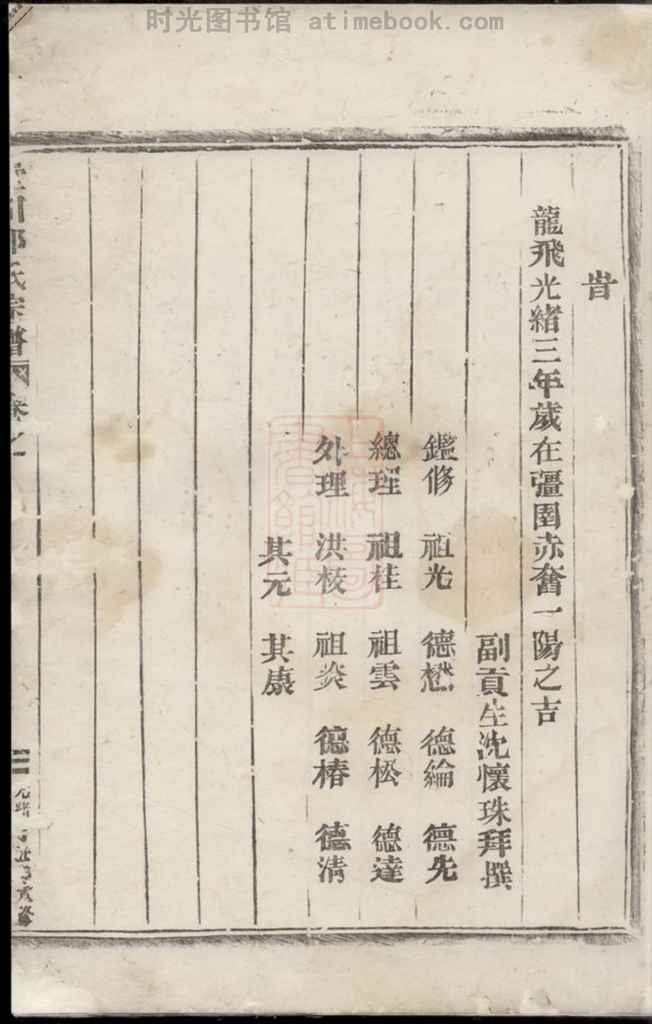 时光图书馆 atimebook.com
昔
龍飛光緒三年歲在彊圉赤奮一陽之吉
副貢生沈懷珠拜撰
鑑修 祖光 德懋 德綸 德先
總理 祖桂 祖雲 德松 德達
外理 洪校 祖炎 德椿 德清
其元 其康
氏宗譜 卷之一
三